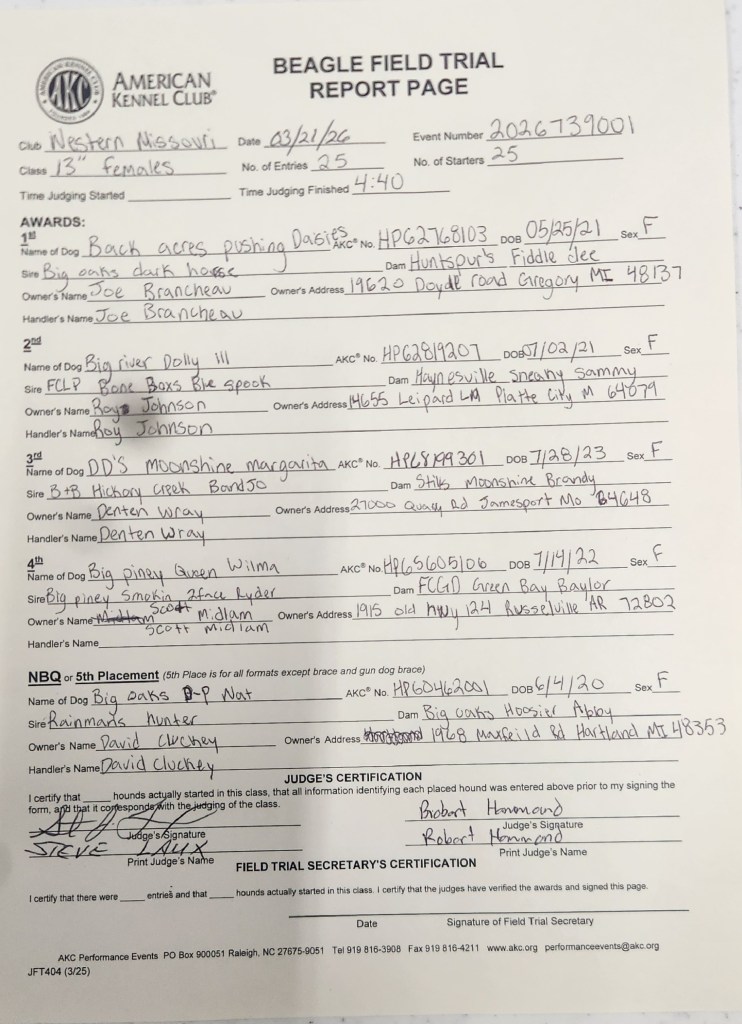 AMERICAN KENNEL CLUB®
AKC
BEAGLE FIELD TRIAL
REPORT PAGE
Club Western Missouri Date 03/21/26 Event Number 2026739001
Class 13" females No. of Entries 25 No. of Starters 25
Time Judging Started Time Judging Finished 4:40
AWARDS:
1st
Name of Dog Back acres pushing Daisies AKC® No. HP62768103 DOB 05/25/21 Sex F
Sire Big oaks dark horse Dam Huntspur's Fiddle dee
Owner's Name Joe Brancheau Owner's Address 19620 Doyde road Gregory MI 48137
Handler's Name Joe Brancheau
2nd
Name of Dog Big river Dolly III AKC® No. HP62819207 DOB 07/02/21 Sex F
Sire FCLP Bone Boxs Ble spook Dam Haynesville Sneaky Sammy
Owner's Name Roy Johnson Owner's Address 14655 Leipard LN Platte City M 64079
Handler's Name Roy Johnson
3rd
Name of Dog DD'S Moonshine margarita AKC® No. HP68199301 DOB 7/28/23 Sex F
Sire B+B Hickory Creek BandJo Dam Stiks Moonshine Brandy
Owner's Name Denten Wray Owner's Address 27000 Quay Rd Jamesport Mo 64648
Handler's Name Denten Wray
4th
Name of Dog Big piney Queen Wilma AKC® No. HP65605106 DOB 7/14/22 Sex F
Sire Big piney Smokin 2face Ryder Dam FCGD Green Bay Baylor
Owner's Name Scott Midlam Owner's Address 1915 old hwy 124 Russelville AR 72802
Scott Midlam
Handler's Name
NBQ or 5th Placement (5th Place is for all formats except brace and gun dog brace)
Name of Dog Big oaks P-P Nat AKC® No. HP60462001 DOB 6/4/20 Sex F
Sire Rainmans hunter Dam Big oaks Hoosier Abby
Owner's Name David Cluckey Owner's Address 1968 Maxfeild Rd Hartland MI 48353
Handler's Name David Cluckey
JUDGE'S CERTIFICATION
I certify that hounds actually started in this class, that all information identifying each placed hound was entered above prior to my signing the
form, and that it corresponds with the judging of the class.
Judge's Signature Judge's Signature
STEVE LAUX Robert Hammond
Print Judge's Name Print Judge's Name
FIELD TRIAL SECRETARY'S CERTIFICATION
I certify that there were entries and that hounds actually started in this class. I certify that the judges have verified the awards and signed this page.
Date Signature of Field Trial Secretary
AKC Performance Events PO Box 900051 Raleigh, NC 27675-9051 Tel 919 816-3908 Fax 919 816-4211 www.akc.org performanceevents@akc.org
JFT404 (3/25)